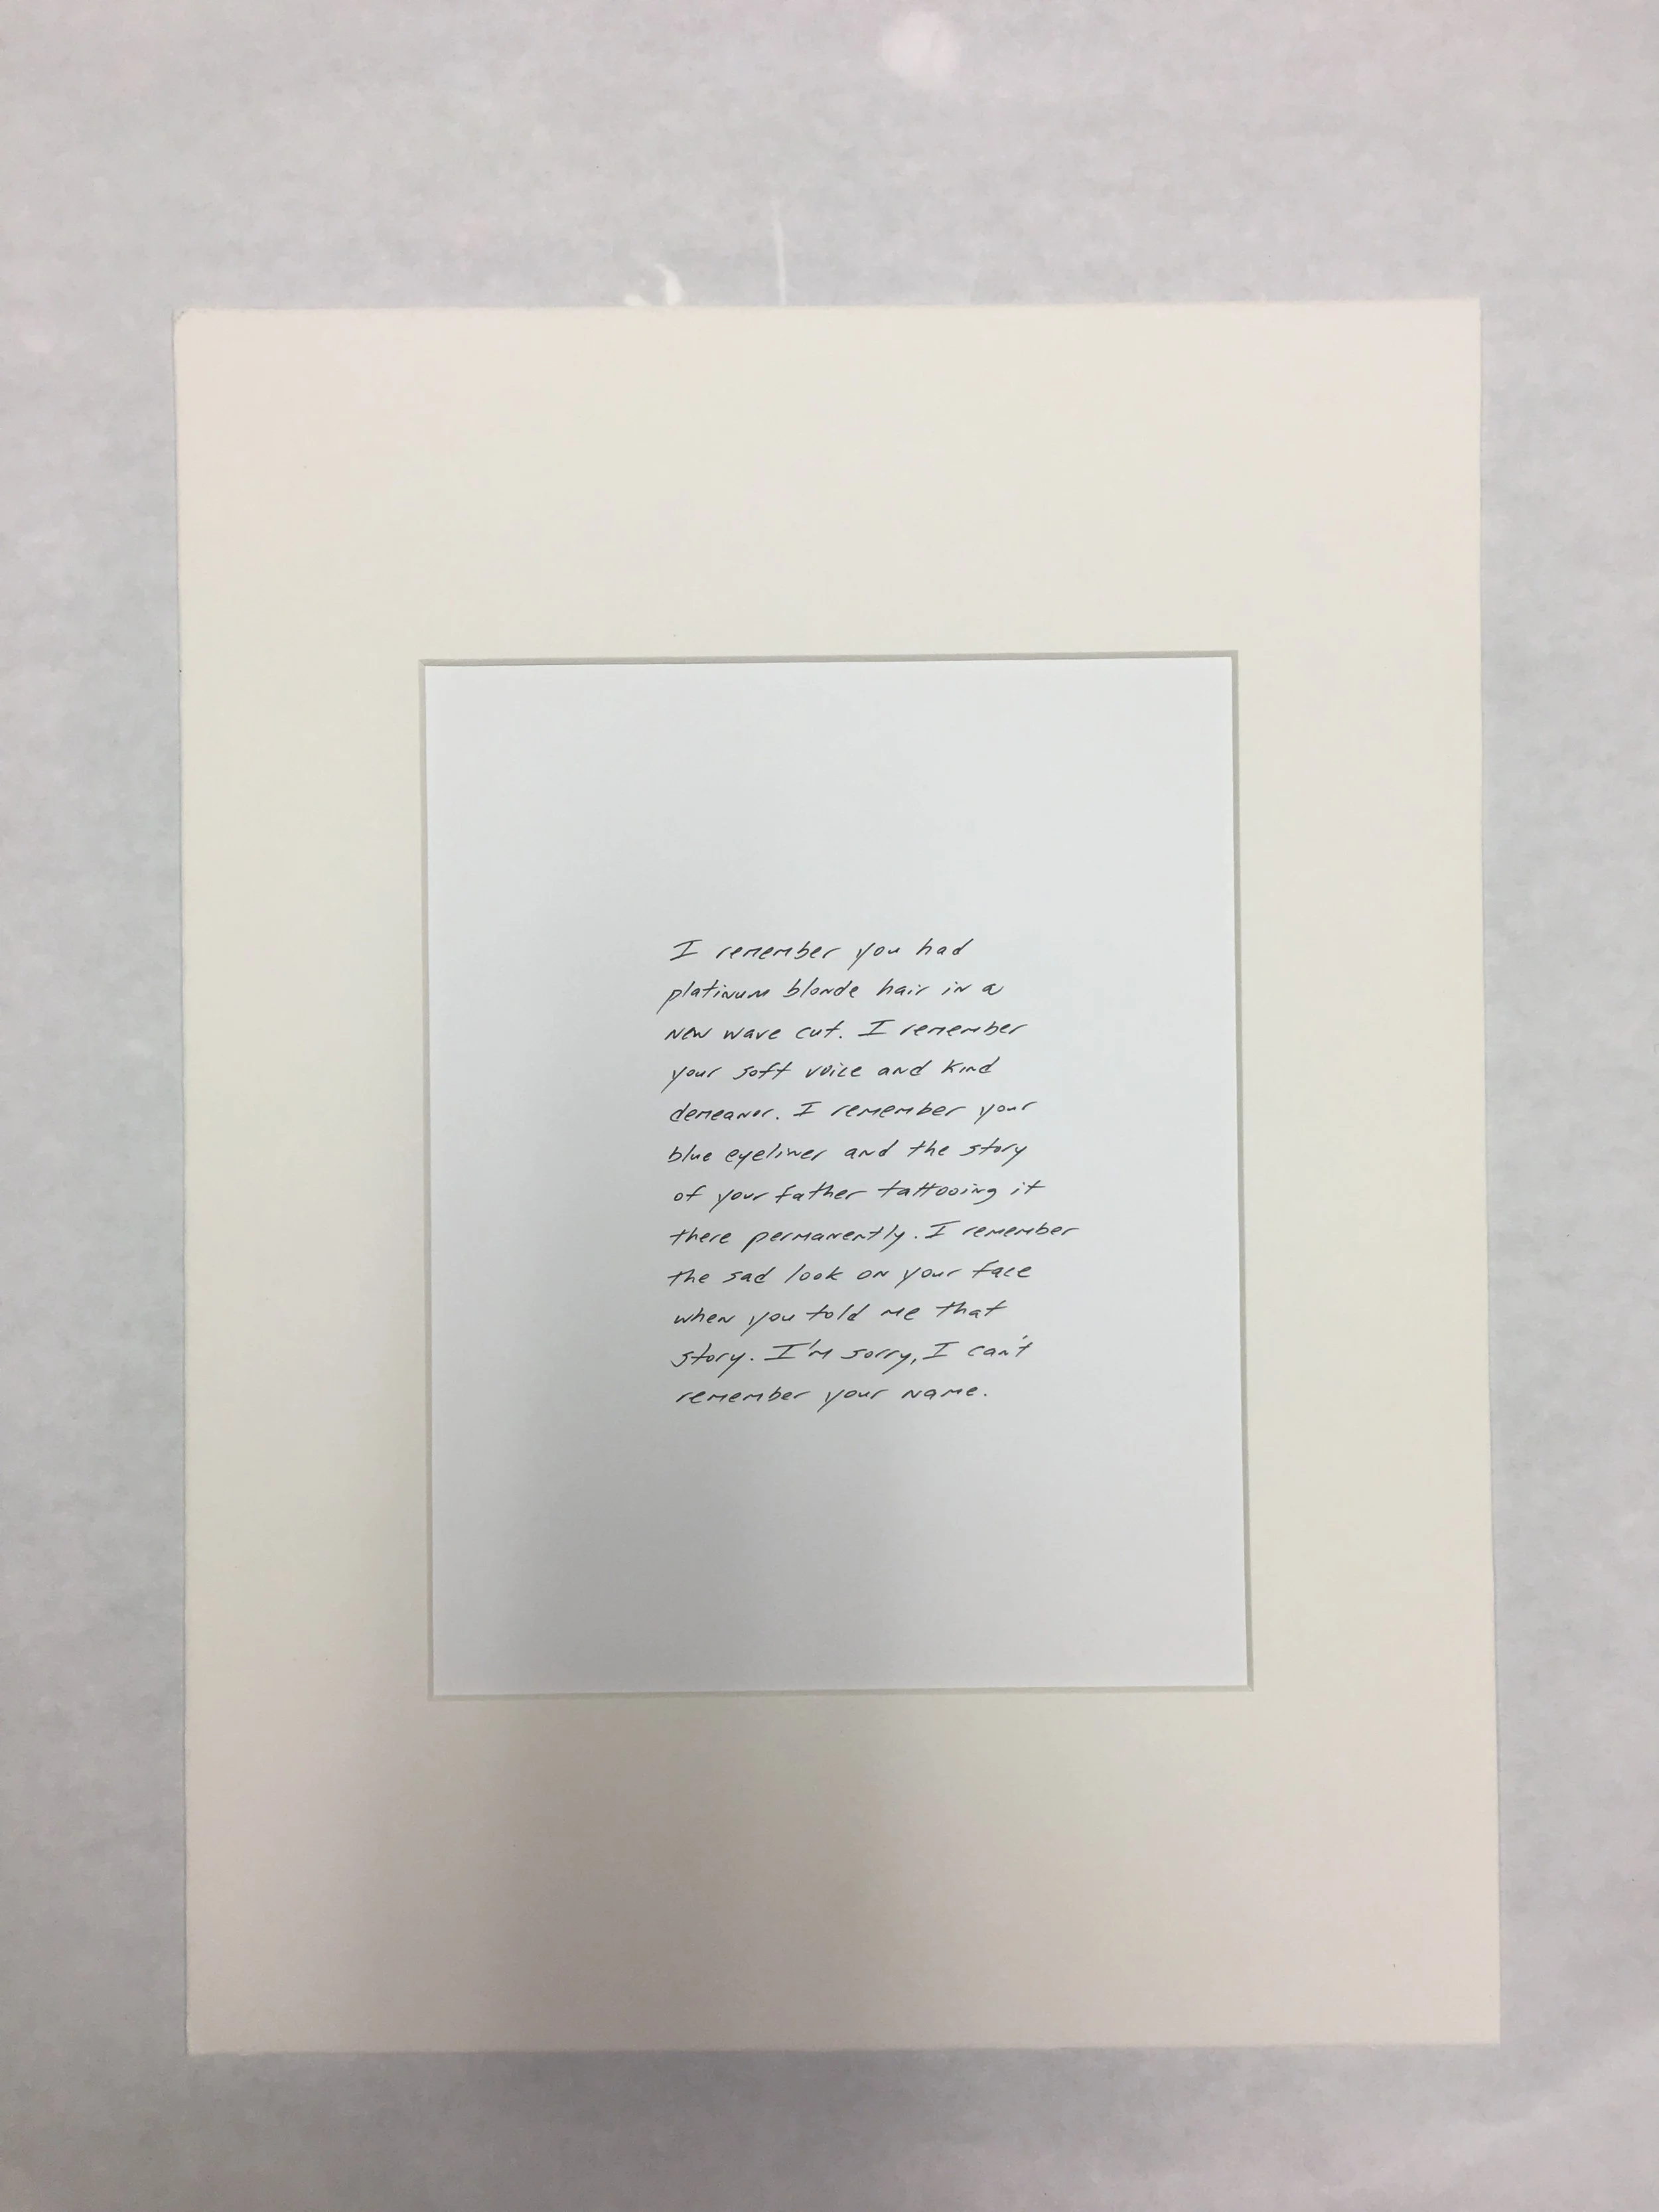 I remember you had
platinum blonde hair in a
new wave cut. I remember
your soft voice and kind
demeanor. I remember your
blue eyeliner and the story
of your father tattooing it
there permanently. I remember
the sad look on your face
when you told me that
story. I'm sorry, I can't
remember your name.